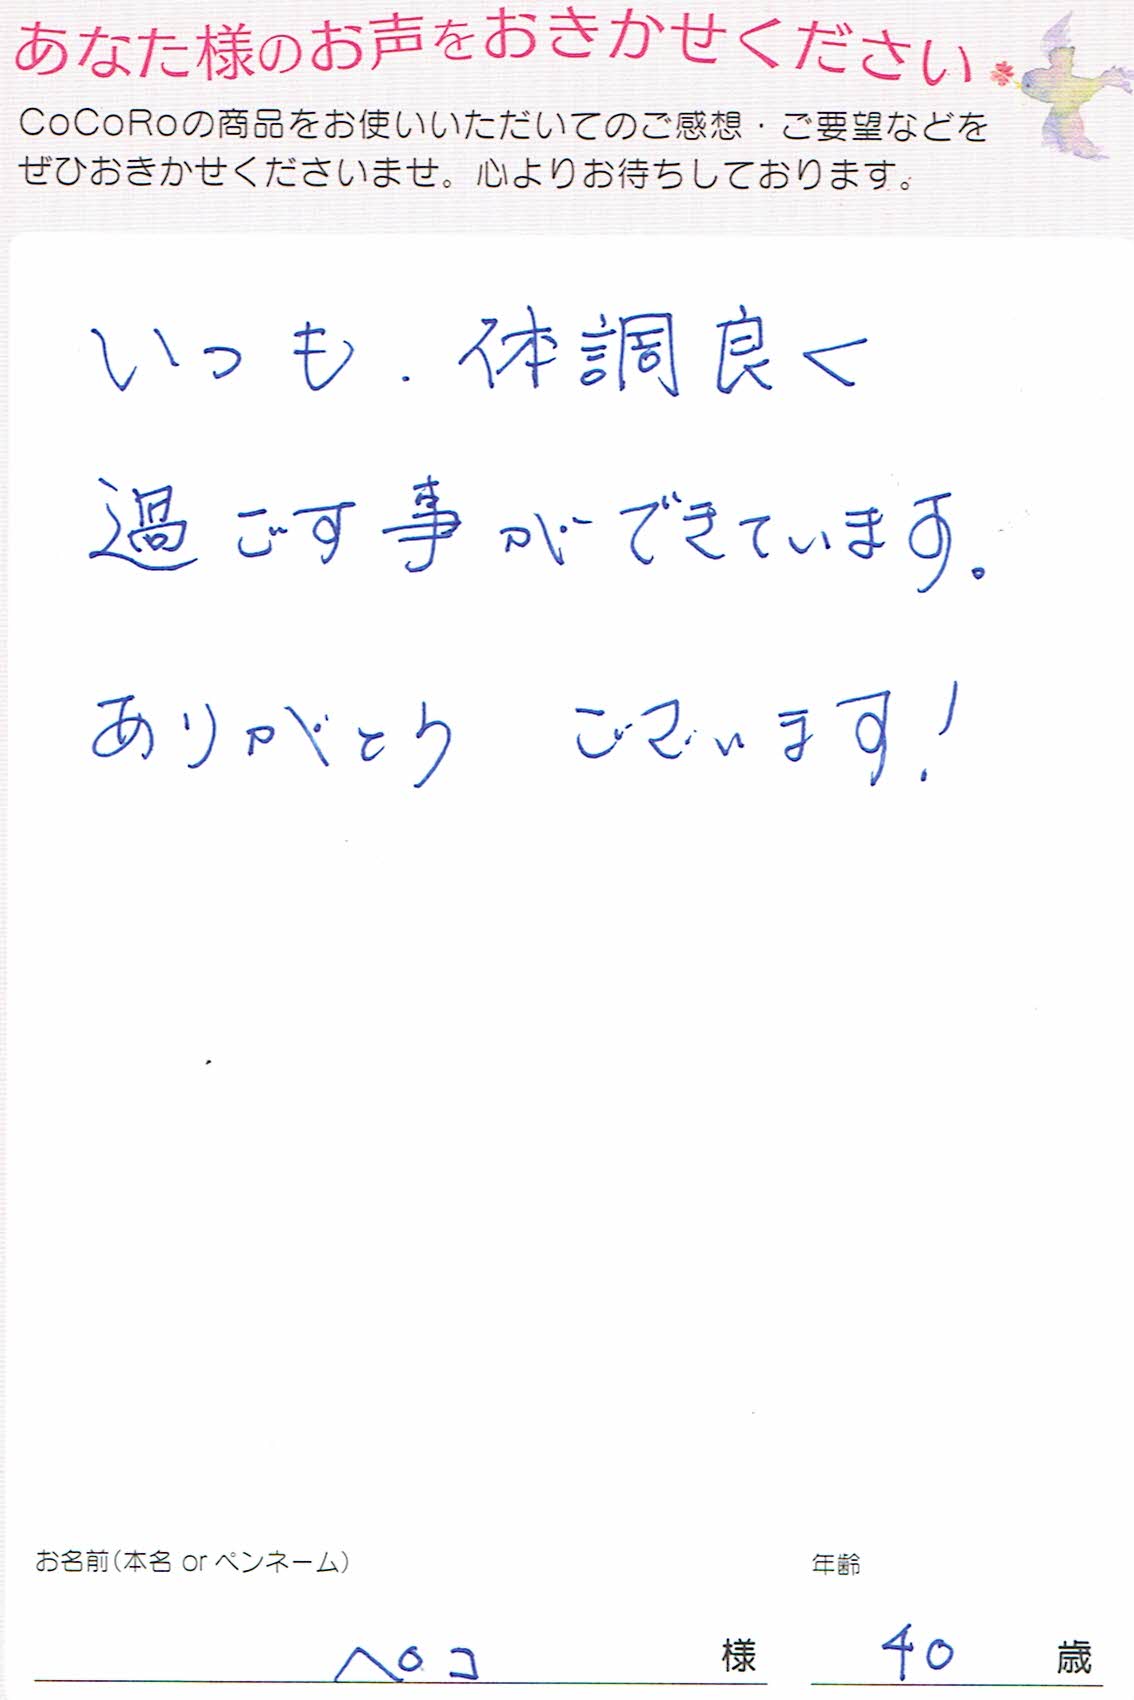 あなた様のお声をおきかせください
CoCoRoの商品をお使いいただいてのご感想・ご要望などを
ぜひおきかせくださいませ。心よりお待ちしております。
いつも、体調良く
過ごす事ができています。
ありがとう ございます!
お名前(本名 or ペンネーム) 年齢
ペコ 様 40 歳